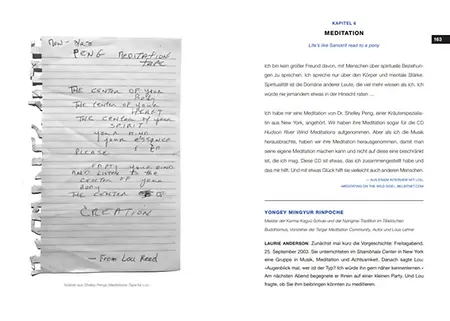 PENG MEDITATION
TAPE
THE CENTER OF YOUR
BODY
THE CENTER OF YOUR
HEART
THE CENTER OF YOUR
SPIRIT
YOUR MIND
YOUR ESSENCE
PLEASE
EMPTY YOUR MIND
AND LISTEN TO THE
CENTER OF YOUR
BODY
THE CENTER OF
CREATION
— From Lou Reed
KAPITEL 6
MEDITATION
Life's like Sanskrit read to a pony
163
Ich bin kein großer Freund davon, mit Menschen über spirituelle Beziehun-
gen zu sprechen. Ich spreche nur über den Körper und mentale Stärke.
Spiritualität ist die Domäne anderer Leute, die viel mehr wissen als ich. Ich
würde nie jemandem etwas in der Hinsicht raten …
Ich habe mir eine Meditation von Dr. Shelley Peng, einer Kräuterspezialis-
tin aus New York, angehört. Wir haben ihre Meditation sogar für die CD
Hudson River Wind Meditations aufgenommen. Aber als ich die Musik
herausbrachte, haben wir ihre Meditation herausgenommen, damit man
seine eigene Meditation machen kann und nicht auf diese eine beschränkt
ist, die ich mag. Diese CD ist etwas, das ich zusammengestellt habe und
das mir hilft. Und mit etwas Glück hilft sie vielleicht auch anderen Menschen.
— AUS EINEM INTERVIEW MIT LOU,
»MEDITATING ON THE WILD SIDE«, BELIEFNET.COM
YONGEY MINGYUR RINPOCHE
Meister der Karma-Kagyü-Schule und der Nyingma-Tradition im Tibetischen
Buddhismus, Vorsteher der Tergar Meditation Community, Autor und Lous Lehrer
LAURIE ANDERSON: Zunächst mal kurz die Vorgeschichte: Freitagabend,
25. September 2003. Sie unterrichteten im Shambhala Center in New York
eine Gruppe in Musik, Meditation und Achtsamkeit. Danach sagte Lou:
»Augenblick mal, wer ist der Typ? Ich würde ihn gern näher kennenlernen.«
Am nächsten Abend begegnete er Ihnen auf einer kleinen Party. Und Lou
fragte, ob Sie ihm beibringen könnten zu meditieren.